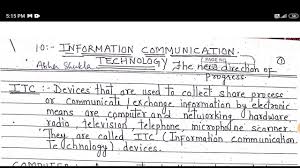 5:15 PM
10:- INFORMATION COMMUNICATION
Abha Shukla TECHNOLOGY PAGE NO.
The new direction of
Progress.
ITC :- Devices that are used to collect share process
or communicate/exchange information by electronic
means are computer and networking (hardware,
radio, television, telephone, microphone scanner.
They are called ITC (Information communication
Technology) devices.